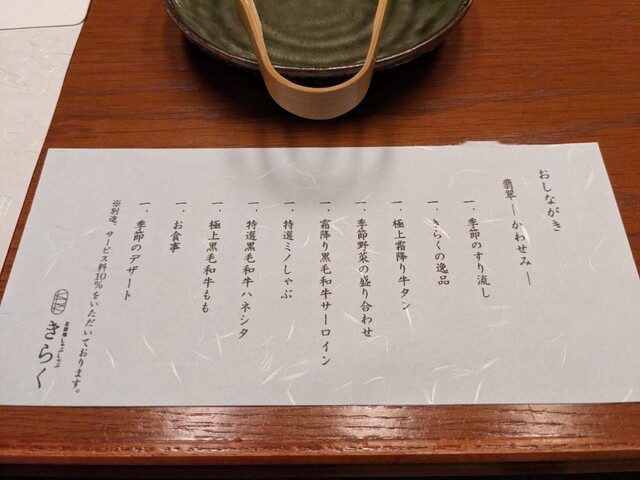 おしながき
翡翠 ― かわせみ ―
一、季節のすり流し
一、きらくの逸品
一、極上霜降り牛タン
一、季節野菜の盛り合わせ
一、霜降り黒毛和牛サーロイン
一、特選ミノしゃぶ
一、特選黒毛和牛ハネシタ
一、極上黒毛和牛もも
一、お食事
一、季節のデザート
※別途、サービス料10%をいただいております。
しゃぶしゃぶ
きらく